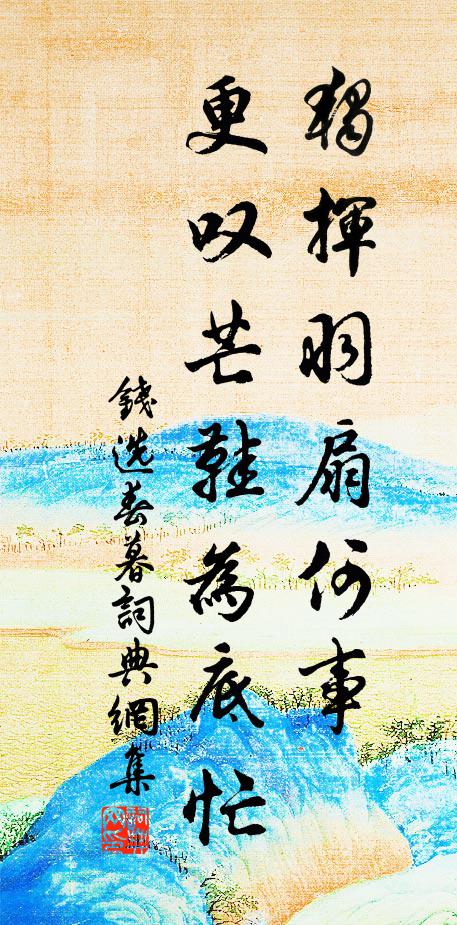 獨揮羽扇何事
更叹芒鞋為底忙
錢选春暮詞典網集